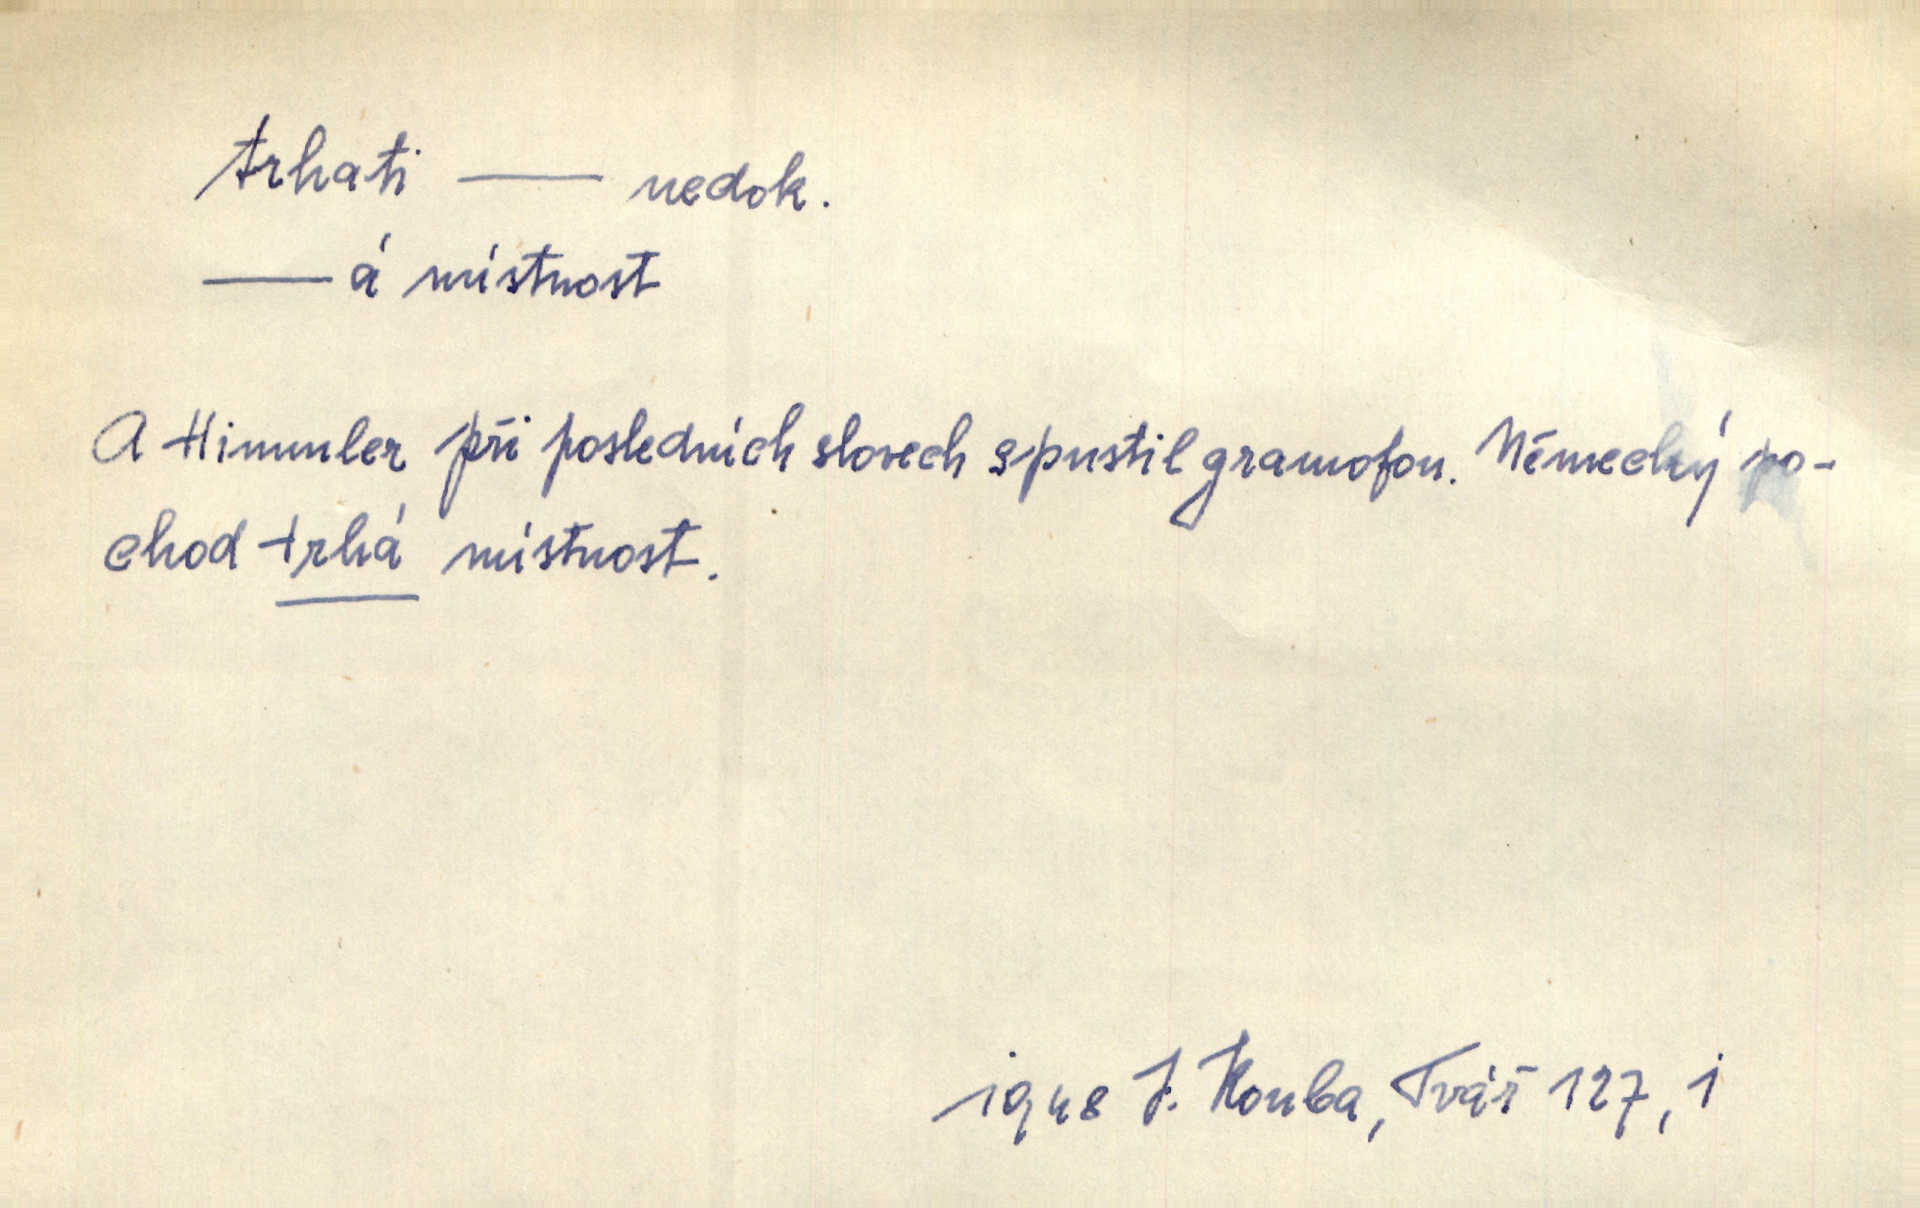 trhati —— nedok.
—— á místnost
A Himmler při posledních slovech spustil gramofon. Německý po-
chod trhá místnost.
1948 J. Kouba, Tvář 127, i